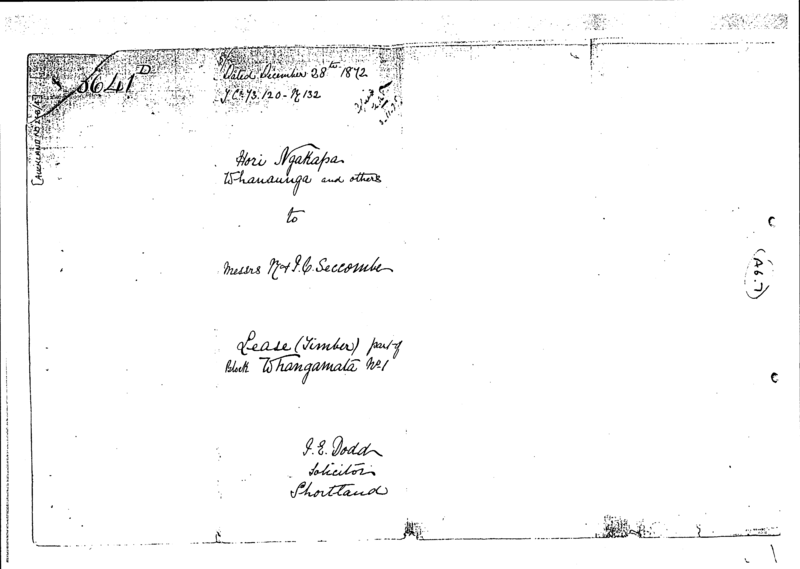 8641 D
Dated December 28th 1872
Hori Ngakapa
Whanaunga and others
to
Messrs & J. C. Seccombe
Lease (Timber) part of
Block Whangamata No 1
J. E. Dodd
Solicitor
Shortland
(A6.7)